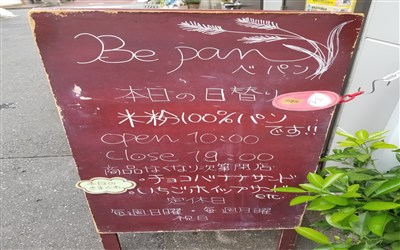 Be pan
べパン
本日の日替り
米粉100%パン
です!!
open 10:00
close 19:00
商品はなくなり次第閉店
・チョコバナナサンド
・いちごホイップサンド
etc.
定休日
毎週日曜・毎週月曜
祝日